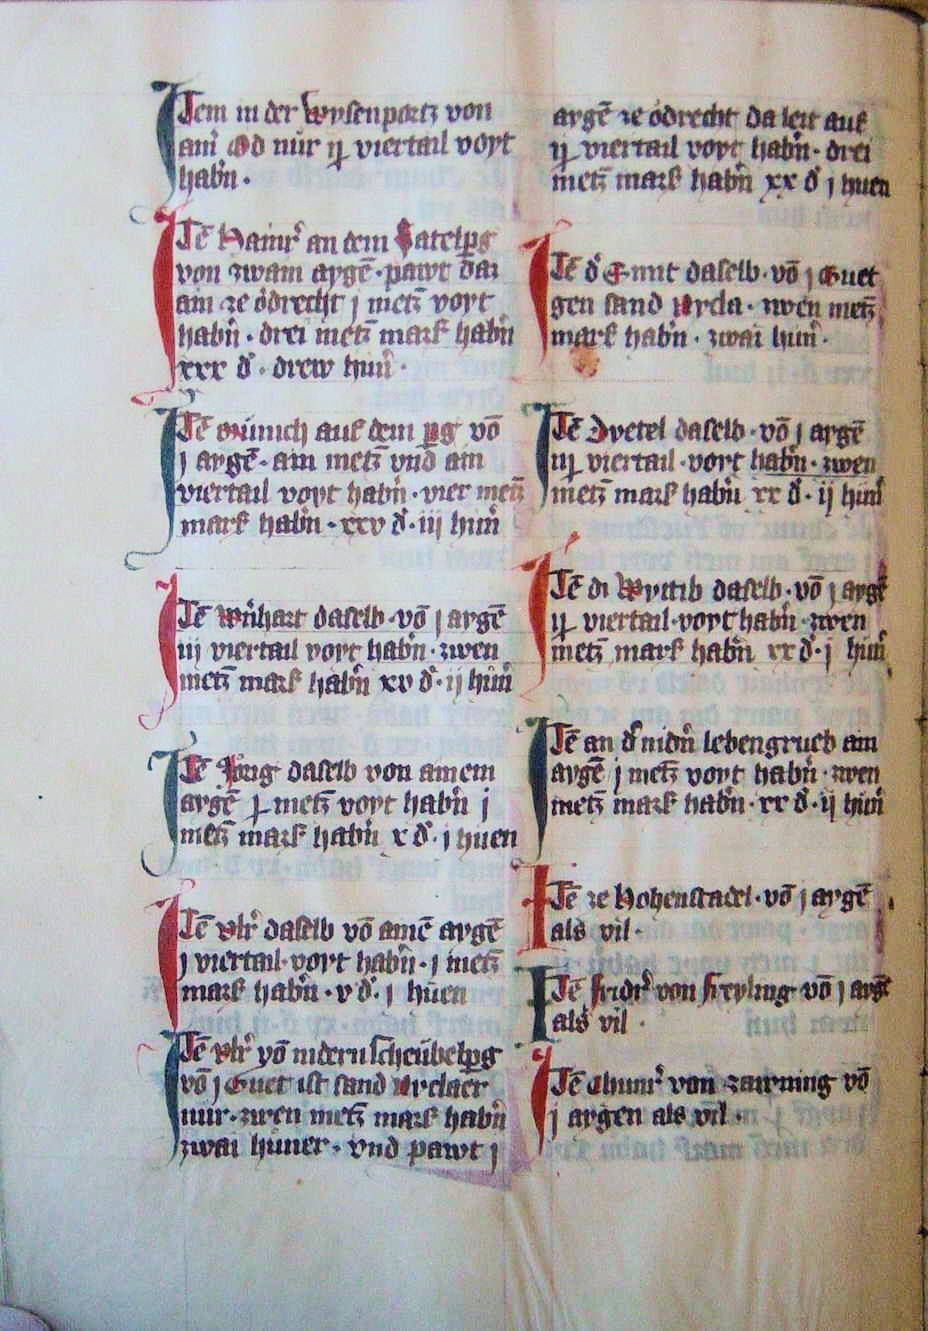 Item in der Wysenpartz von
aim̄ Ód nur ij viertail voyt
habn̄ ·
Itē Hainr̄ an dem Satelpg
von zwain aygē · pawt daz
ain ze ódrecht j metz̄ voyt
habn̄ · drei metz̄ mark habn̄
xxx d̄ · drew hun̄ ·
Itē Münich auf dem pg võ
j aygē · ain metz̄ vnd ain
viertail voyt habn̄ · vier metz̄
mark habn̄ · xxv d̄ · iij hun̄
Itē Wn̄hart daselb · võ j aygē
iij viertail voyt habn̄ · zwen
metz̄ mark habn̄ xv d̄ · ij hün̄
Itē daselb von ainem
aygē metz̄ voyt habn̄ j
metz̄ mark habn̄ x d̄ · j huen
Itē Vlr̄ daselb võ ainē aygē
j viertail · voyt habn̄ · j metz̄
mark habn̄ · v d̄ · j hūen
Itē Vlr̄ võ nidern scheübelpg
võ j Guet ist sand Vrelaer
nur · zwen metz̄ mark habn̄
zwai hüner · vnd pawt j
aygē ze ódrecht da leit auf
ij viertail voyt habn̄ · drei
metz̄ mark habn̄ xx d̄ j huen
Itē d̄ Smit daselb · võ j Guet
gen sand Vrcla · zwen metz̄
mark habn̄ · zwai hun̄ ·
Itē Dyetel daselb · võ j aygē
iij viertail · voyt habn̄ · zwen
metz̄ mark habn̄ xx d̄ · ij hün̄
Itē di Wyttib daselb · võ j aygē
ij viertail · voyt habn̄ · zwen
metz̄ mark habn̄ xx d̄ · j hun̄
Itē an d̄ nidn̄ lebengrueb ain
aygē j metz̄ voyt habn̄ · zwen
metz̄ mark habn̄ · xx d̄ · ij hün̄
Itē ze Hohenstadel · võ j aygē
als vil ·
Itē fridr̄ von freyling võ j aygē
als vil ·
Itē Chunr̄ von zawning võ
j aygen als vil ·